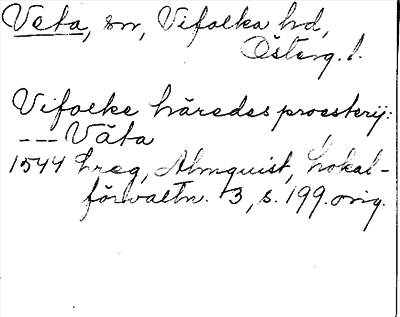 Veta, sn, Vifolka hd,
Österg. l.
Vifolke häredes proesterij:
--- Väta
1544 Lreg, Almquist, Lokal-
förvaltn. 3, s. 199. orig.